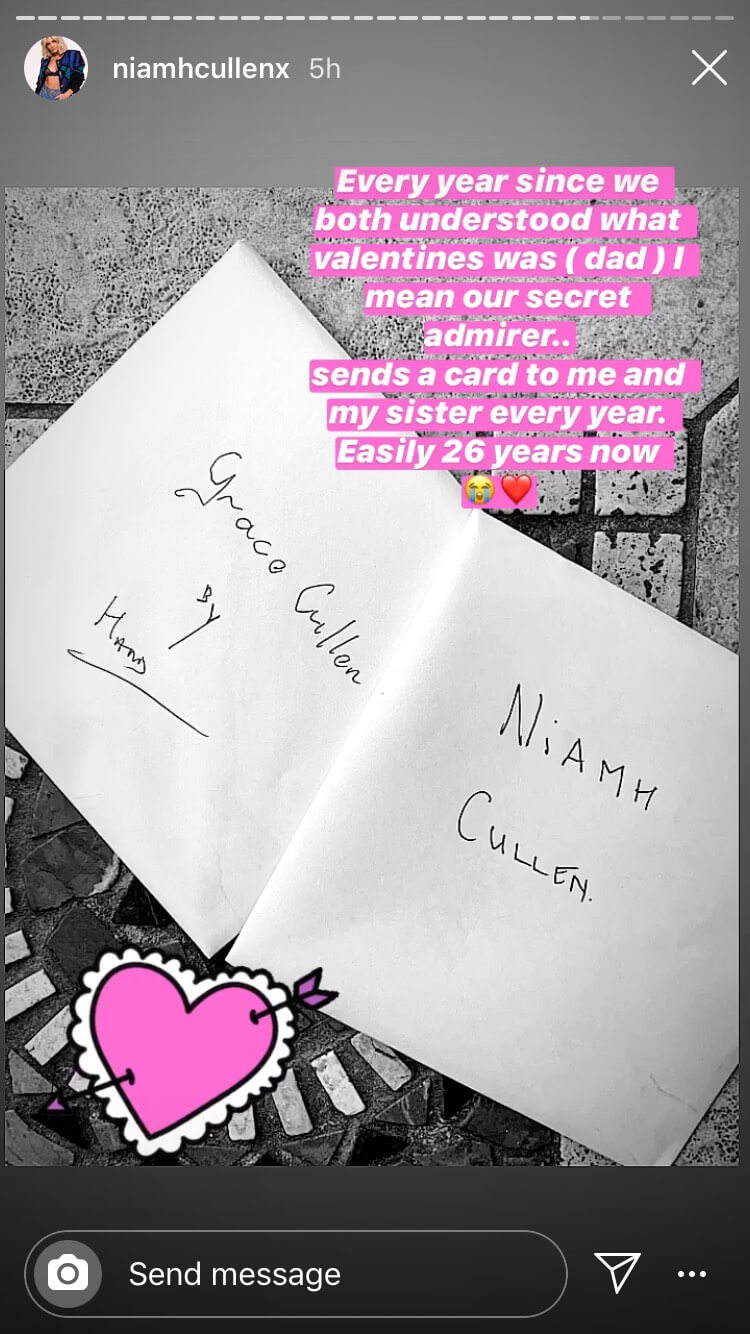 niamhcullenx 5h
Every year since we
both understood what
valentines was ( dad ) I
mean our secret
admirer..
sends a card to me and
my sister every year.
Easily 26 years now
😭❤️
Grace Cullen
By
Hand
NiAMH
CULLEN.
Send message